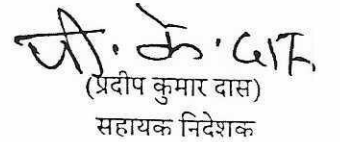 पी. के. दास
(प्रदीप कुमार दास)
सहायक निदेशक